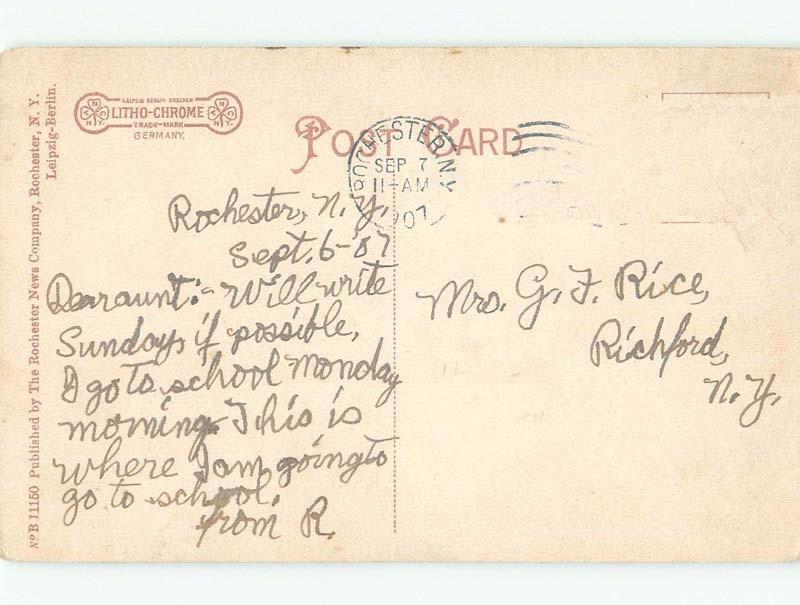 Nº B 11150 Published by The Rochester News Company, Rochester, N. Y.
Leipzig-Berlin.
LEIPZIG BERLIN DRESDEN
LITHO-CHROME
TRADE-MARK
GERMANY.
POST CARD
ROCHESTER, N.Y.
SEP 7
11-AM
1907
Rochester, N.Y.
Sept. 6-'07
Dear aunt:- Will write
Sunday, if possible,
I go to school Monday
morning. This is
where I am going to
go to school.
from R.
Mrs. G. F. Rice,
Richford,
N.Y.